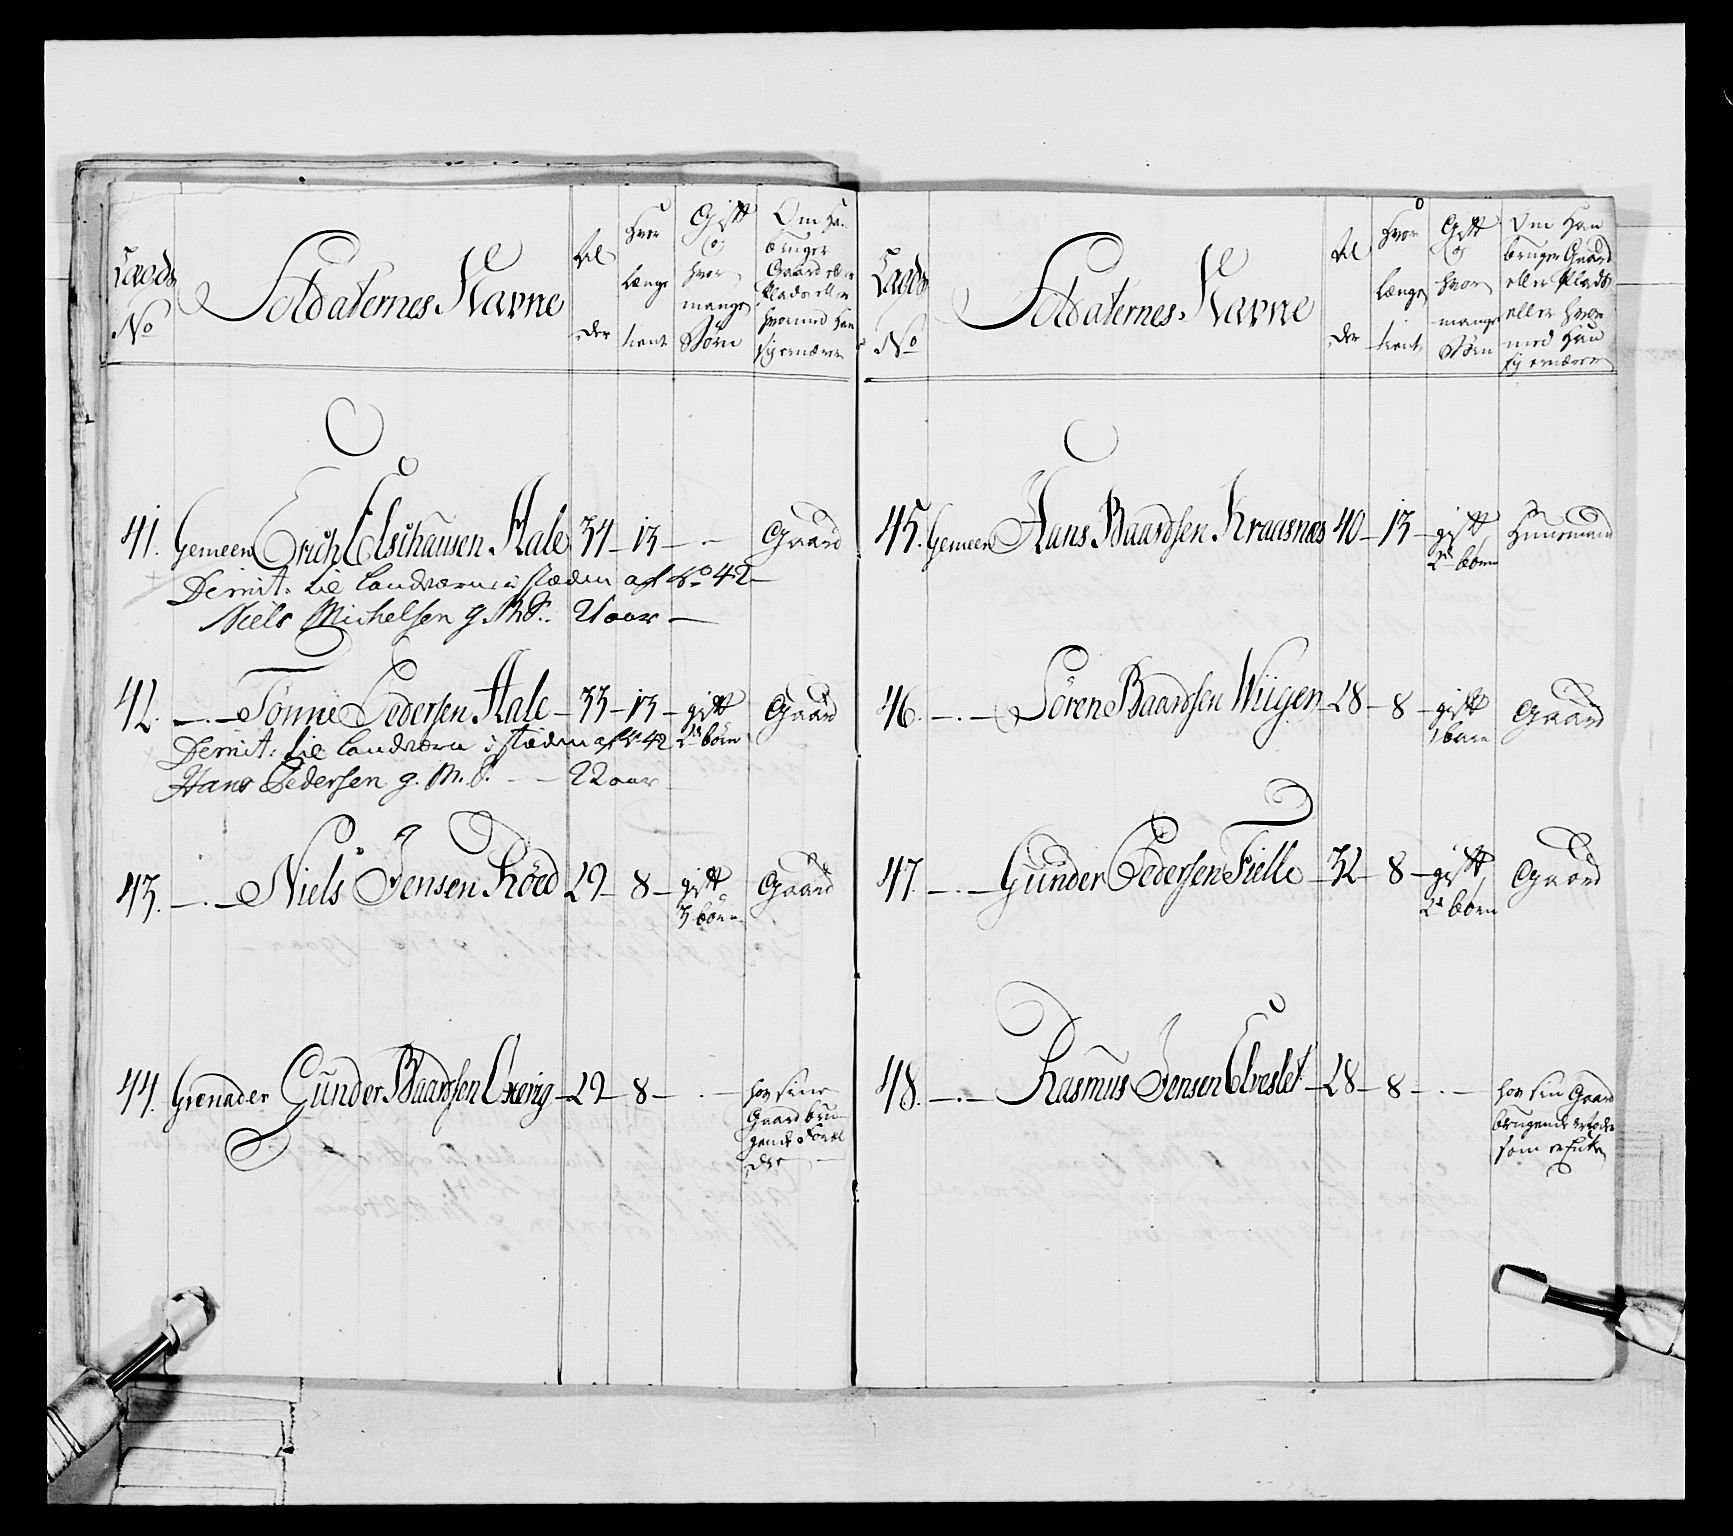 Laods No
Soldaternes Navne
Al der
Hvor længe tient
Gift og hvor mange Börn
Om Han bruger Gaard eller Plads eller hvormed Han sig ernærer
41. Gemeen Erich Elschausen Hale 34 – 13 – . – Gaard
Demit: til landværn i stæden af No 42 –
Niels Michelsen g. M. S. 21 aar –
42. – . – Tönne Pedersen Hale – 33 – 13 – gift 2de börn Gaard
Demit: til landværn i stæden af No 42
Hans Pedersen g. M. S. – 22 aar
43. – . – Niels Jensen Röed 29 – 8 – gift 3 börn Gaard
44. Grenader Gunder Baardsen Oxevig – 29 – 8 – . – hos sine Gaard brugende Forældre –
Laods No
Soldaternes Navne
Al der
Hvor længe tient
Gift og hvor mange Börn
Om Han bruger Gaard eller Plads eller Hvor med Han sig ernærer
45. Gemeen Hans Baardsen Kraasnæs 40 – 13 – gift 2de börn Huusmand
46. – . – Sören Baardsen Wiigen – 28 – 8 – gift 1 barn Gaard
47. – . – Gunder Pedersen Fielle – 32 – 8 – gift 2de börn Gaard
48. – . – Rasmus Jensen Elveslet – 28 – 8 – . – hos sin Gaard brugende Moder som enke